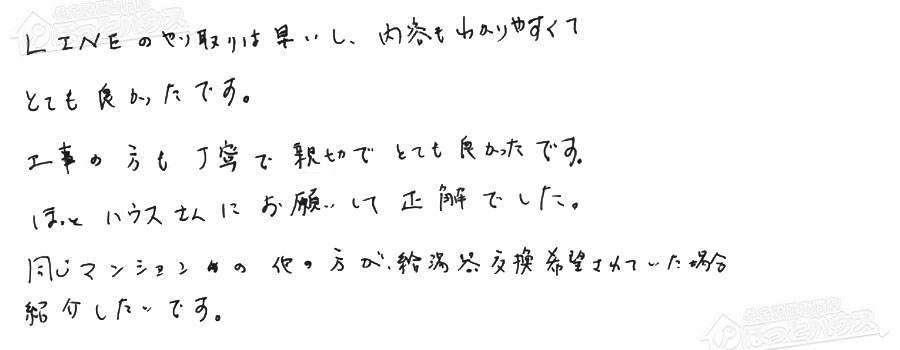 LINEのやり取りは早いし、内容もわかりやすくて
とても良かったです。
工事の方も丁寧で親切でとても良かったです。
ほっとハウスさんにお願いして正解でした。
同じマンションの他の方が、給湯器交換希望されていた場合
紹介したいです。
住宅設備専門店
ほっとハウス
住宅設備専門店
ほっとハウス